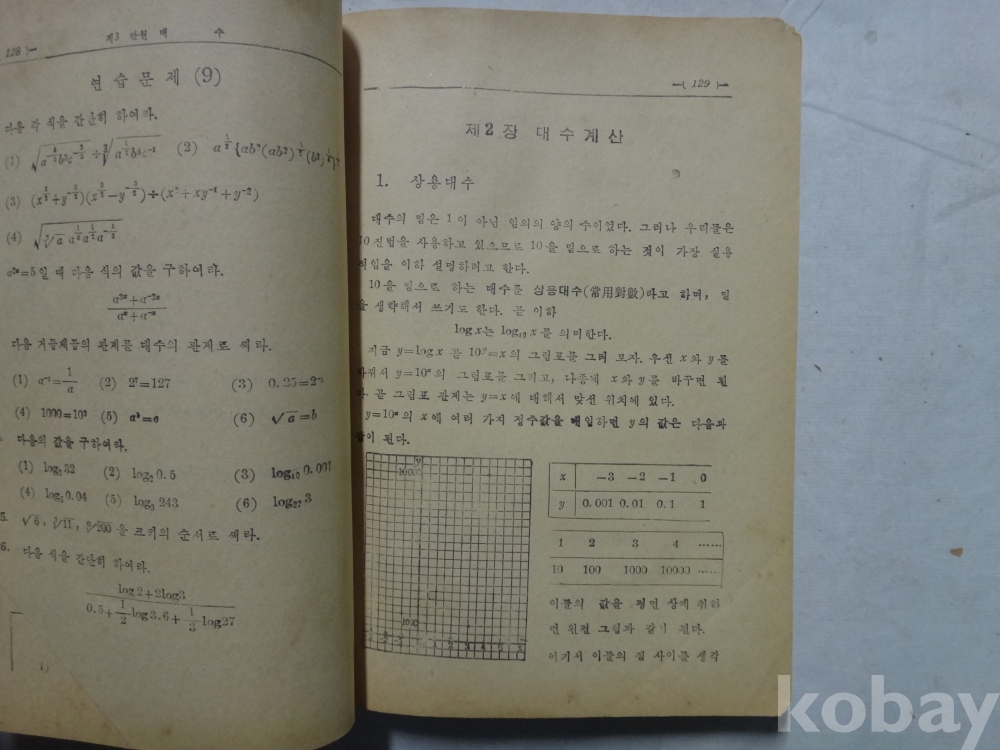 128
제3 만원 대 수
연 습 문 제 (9)
다음 각 식을 간단히 하여라.
(1) (2)
(3) ÷(x²+xy⁻¹+y⁻²)
(4)
a²ˣ=5일 때 다음 식의 값을 구하여라.
다음 거듭제곱의 관계를 대수의 관계로 써라.
(1) a⁻¹=1/a (2) 2⁷=127 (3)
(4) 1000=10³ (5) (6) √a=b
다음의 값을 구하여라.
(1) log₂32 (2) log₂0.5 (3) log₁₀0.001
(4) 0.04 (5) log₃243 (6) log₂₇3
5. 을 크기의 순서로 써라.
6. 다음 식을 간단히 하여라.
log2+2log3
0.5+1/2log3.6+1/3log27
—( 129 )—
제2장 대수계산
1. 상용대수
대수의 밑은 1이 아닌 임의의 양의 수이였다. 그러나 우리들은
10진법을 사용하고 있으므로 10을 밑으로 하는 것이 가장 실용
적임을 이하 설명하려고 한다.
10을 밑으로 하는 대수를 상용대수(常用對數)라고 하며, 밑
을 생략해서 쓰기도 한다. 곧 이하
log x는 log₁₀ x를 의미한다.
지금 y=log x 곧 10ʸ=x의 그림표를 그려 보자. 우선 x와 y를
바꿔서 y=10ˣ의 그림표를 그리고, 나중에 x와 y를 바꾸면 된
다. 곧 그림표 관계는 y=x에 대해서 맞선 위치에 있다.
y=10ˣ의 x에 여러 가지 정수값을 대입하면 y의 값은 다음과
같이 된다.
x −3 −2 −1 0
y 0.001 0.01 0.1 1
1 2 3 4 ……
10 100 1000 10000 ……
이들의 값을 평면 상에 취하
면 왼편 그림과 같이 된다.
여기서 이들의 점 사이를 생각
kobay